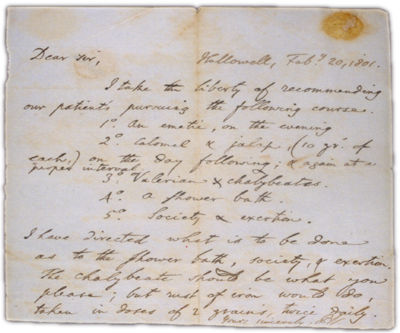 Dear Sir, Hallowell, Feb.y 20, 1801.
I take the liberty of recommending
our patient's pursuing the following course.
1.o An emetic, on the evening
2.o Calomel & jalap, (10 gr. of
each,) on the day following; & again at a
proper interval.
3.o Valerian & chalybeates.
4.o A shower bath.
5.o Society & exertion.
I have directed what is to be done
as to the shower bath, society, & exertion.
The chalybeate should be what you
please; but rust of iron would do,
taken in doses of 2 grains, twice daily.
Yours sincerely,